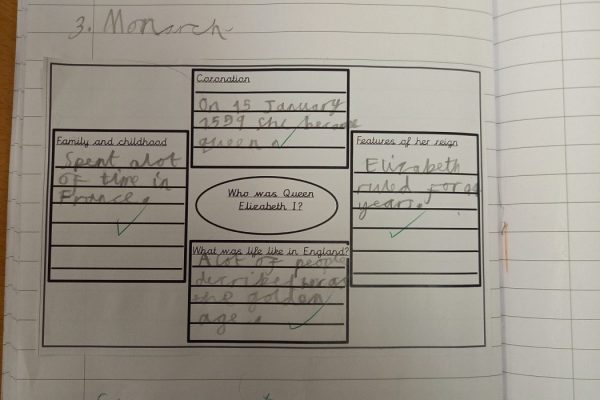 3. Monarch
Coronation
On 15 January
1559 she became
queen.
Family and childhood
Spent alot
of time in
France.
Who was Queen
Elizabeth I?
Features of her reign
Elizabeth
ruled for
years.
What was life like in England?
A lot of people
described
the golden
age.